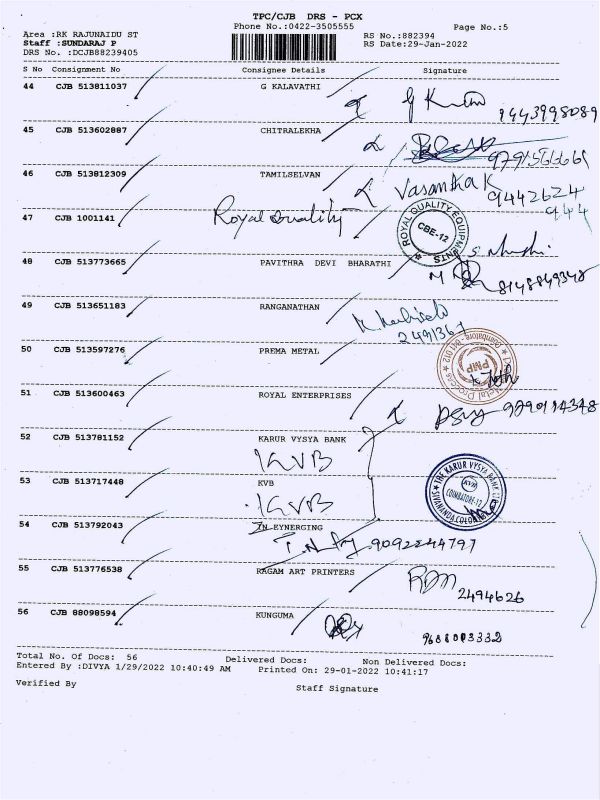 TPC/CJB DRS - PCX
Phone No.:0422-3505555 Page No.:5
Area :RK RAJUNAIDU ST
Staff :SUNDARAJ P
DRS No. :DCJB88239405
RS No.:882394
RS Date:29-Jan-2022
S No Consignment No Consignee Details Signature
44 CJB 513811037 G KALAVATHI
9443998089
45 CJB 513602887 CHITRALEKHA
46 CJB 513812309 TAMILSELVAN
Vasantha K 9442624
944
47 CJB 1001141 Royal Quality
ROYAL QUALITY EQUIPMENTS
CBE-12
48 CJB 513773665 PAVITHRA DEVI BHARATHI
8148849348
49 CJB 513651183 RANGANATHAN
2491367
50 CJB 513597276 PREMA METAL
PMP
51 CJB 513600463 ROYAL ENTERPRISES
52 CJB 513781152 KARUR VYSYA BANK
KVB
53 CJB 513717448 KVB
KVB
THE KARUR VYSYA BANK
KVB
COIMBATORE-12
SIVANANDA COLONY
54 CJB 513792043 ZN EYNERGING
9092244797
55 CJB 513776538 RAGAM ART PRINTERS
2494626
56 CJB 88098594 KUNGUMA
9688003332
Total No. Of Docs: 56 Delivered Docs: Non Delivered Docs:
Entered By :DIVYA 1/29/2022 10:40:49 AM Printed On: 29-01-2022 10:41:17
Verified By Staff Signature